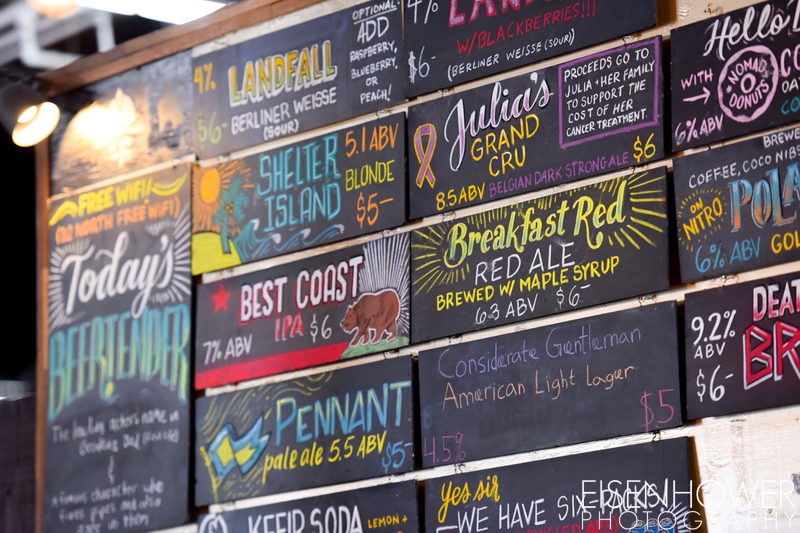 FREE WIFI
(B2 NORTH FREE WIFI)
Today's
BEERTENDER
The leading actor's name in
&
A famous character who
fixes pipes and also
them in them
4%
$6-
LANDFALL
BERLINER WEISSE
(SOUR)
OPTIONAL
ADD
RASPBERRY,
BLUEBERRY,
OR
PEACH!
SHELTER
ISLAND
5.1 ABV
BLONDE
$5-
BEST COAST
IPA $6
7% ABV
PENNANT
pale ale 5.5 ABV
$5-
KEEP SODA
LEMON +
4%
$6-
W/BLACKBERRIES!!!
(BERLINER WEISSE (SOUR)
Julia's
GRAND
CRU
8.5 ABV BELGIAN DARK STRONG ALE
PROCEEDS GO TO
JULIA + HER FAMILY
TO SUPPORT THE
COST OF HER
CANCER TREATMENT.
$6
Breakfast Red
RED ALE
BREWED W/ MAPLE SYRUP
6.3 ABV $6-
Considerate Gentleman
American Light Lager
4.5%
$5
yes sir
—WE HAVE SIX PACKS
Hello
WITH
→
NOMAD
DONUTS
6% ABV
BREWED
COFFEE, COCO NIBS
ON
NITRO
6% ABV
9.2%
ABV
$6-
EISENHOWER
PHOTOGRAPHY